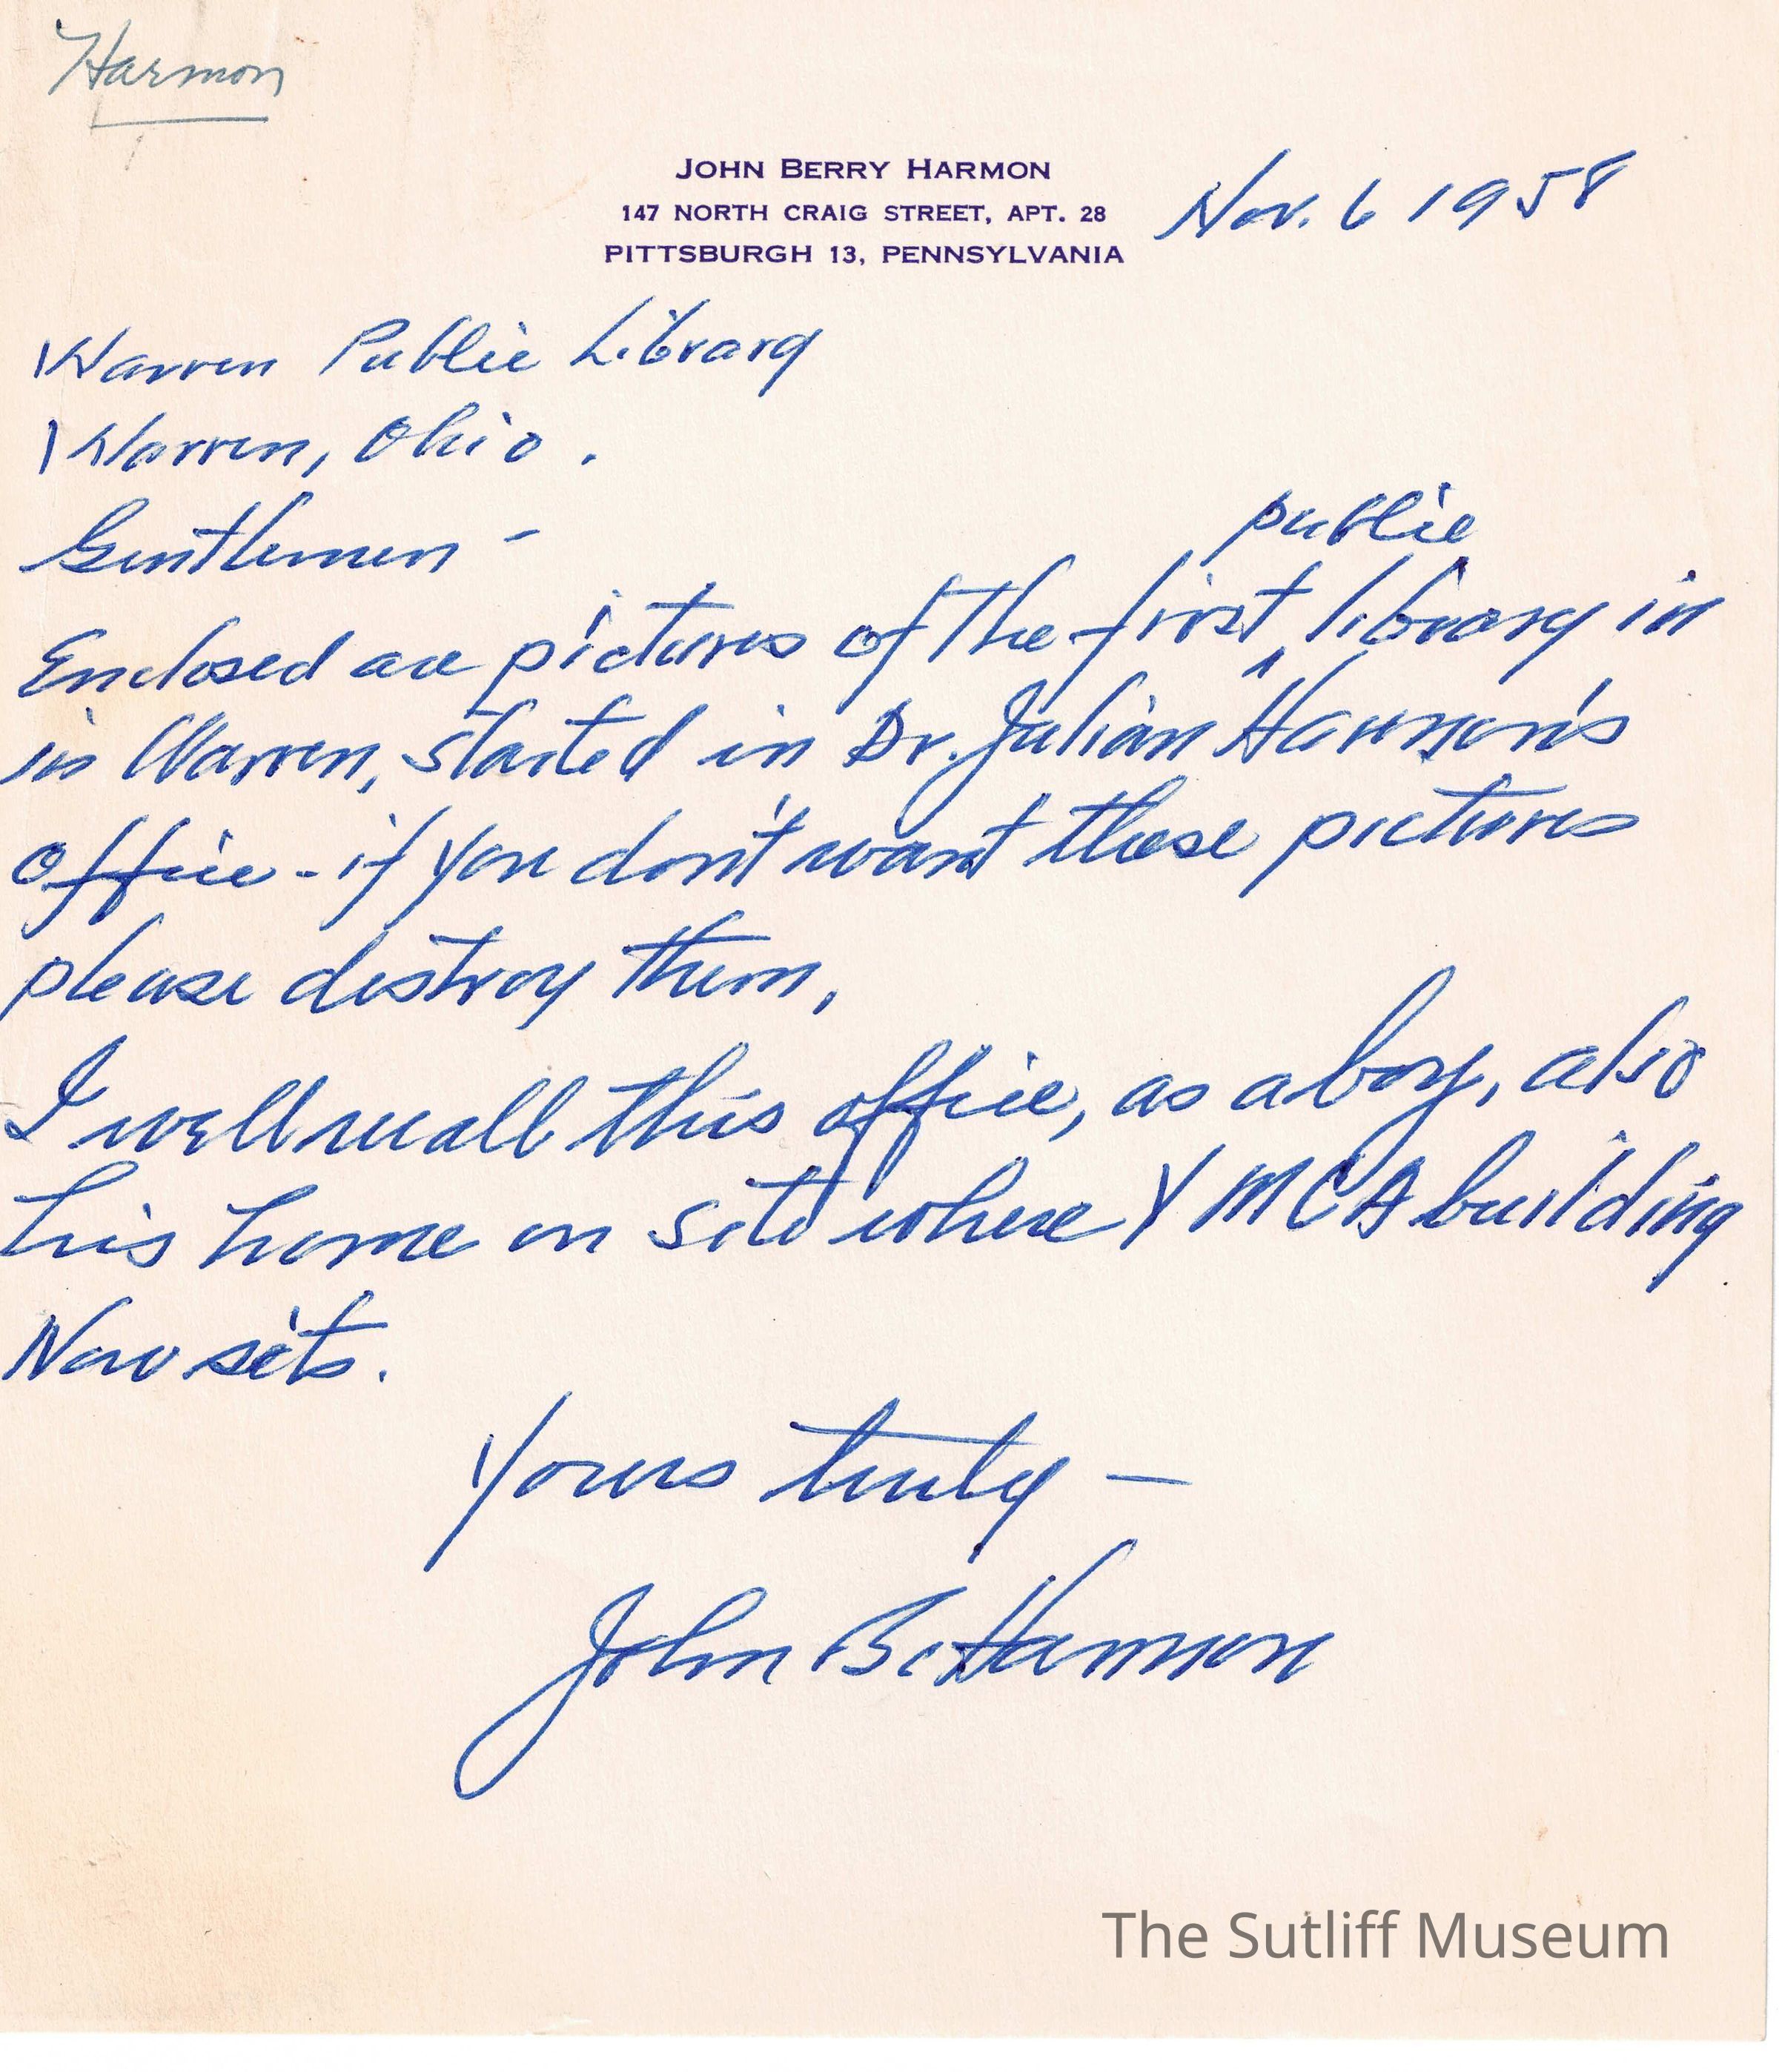 Harmon
JOHN BERRY HARMON
147 NORTH CRAIG STREET, APT. 28
PITTSBURGH 13, PENNSYLVANIA
Nov. 6 1958
Warren Public Library
Warren, Ohio.
Gentlemen -
public
Enclosed are pictures of the first ^ library in
in Warren, started in Dr. Julian Harmon's
office - if you don't want these pictures
please destroy them,
I well recall this office, as a boy, also
his home on site where YMCA building
Now sits.
Yours truly —
John B. Harmon
The Sutliff Museum